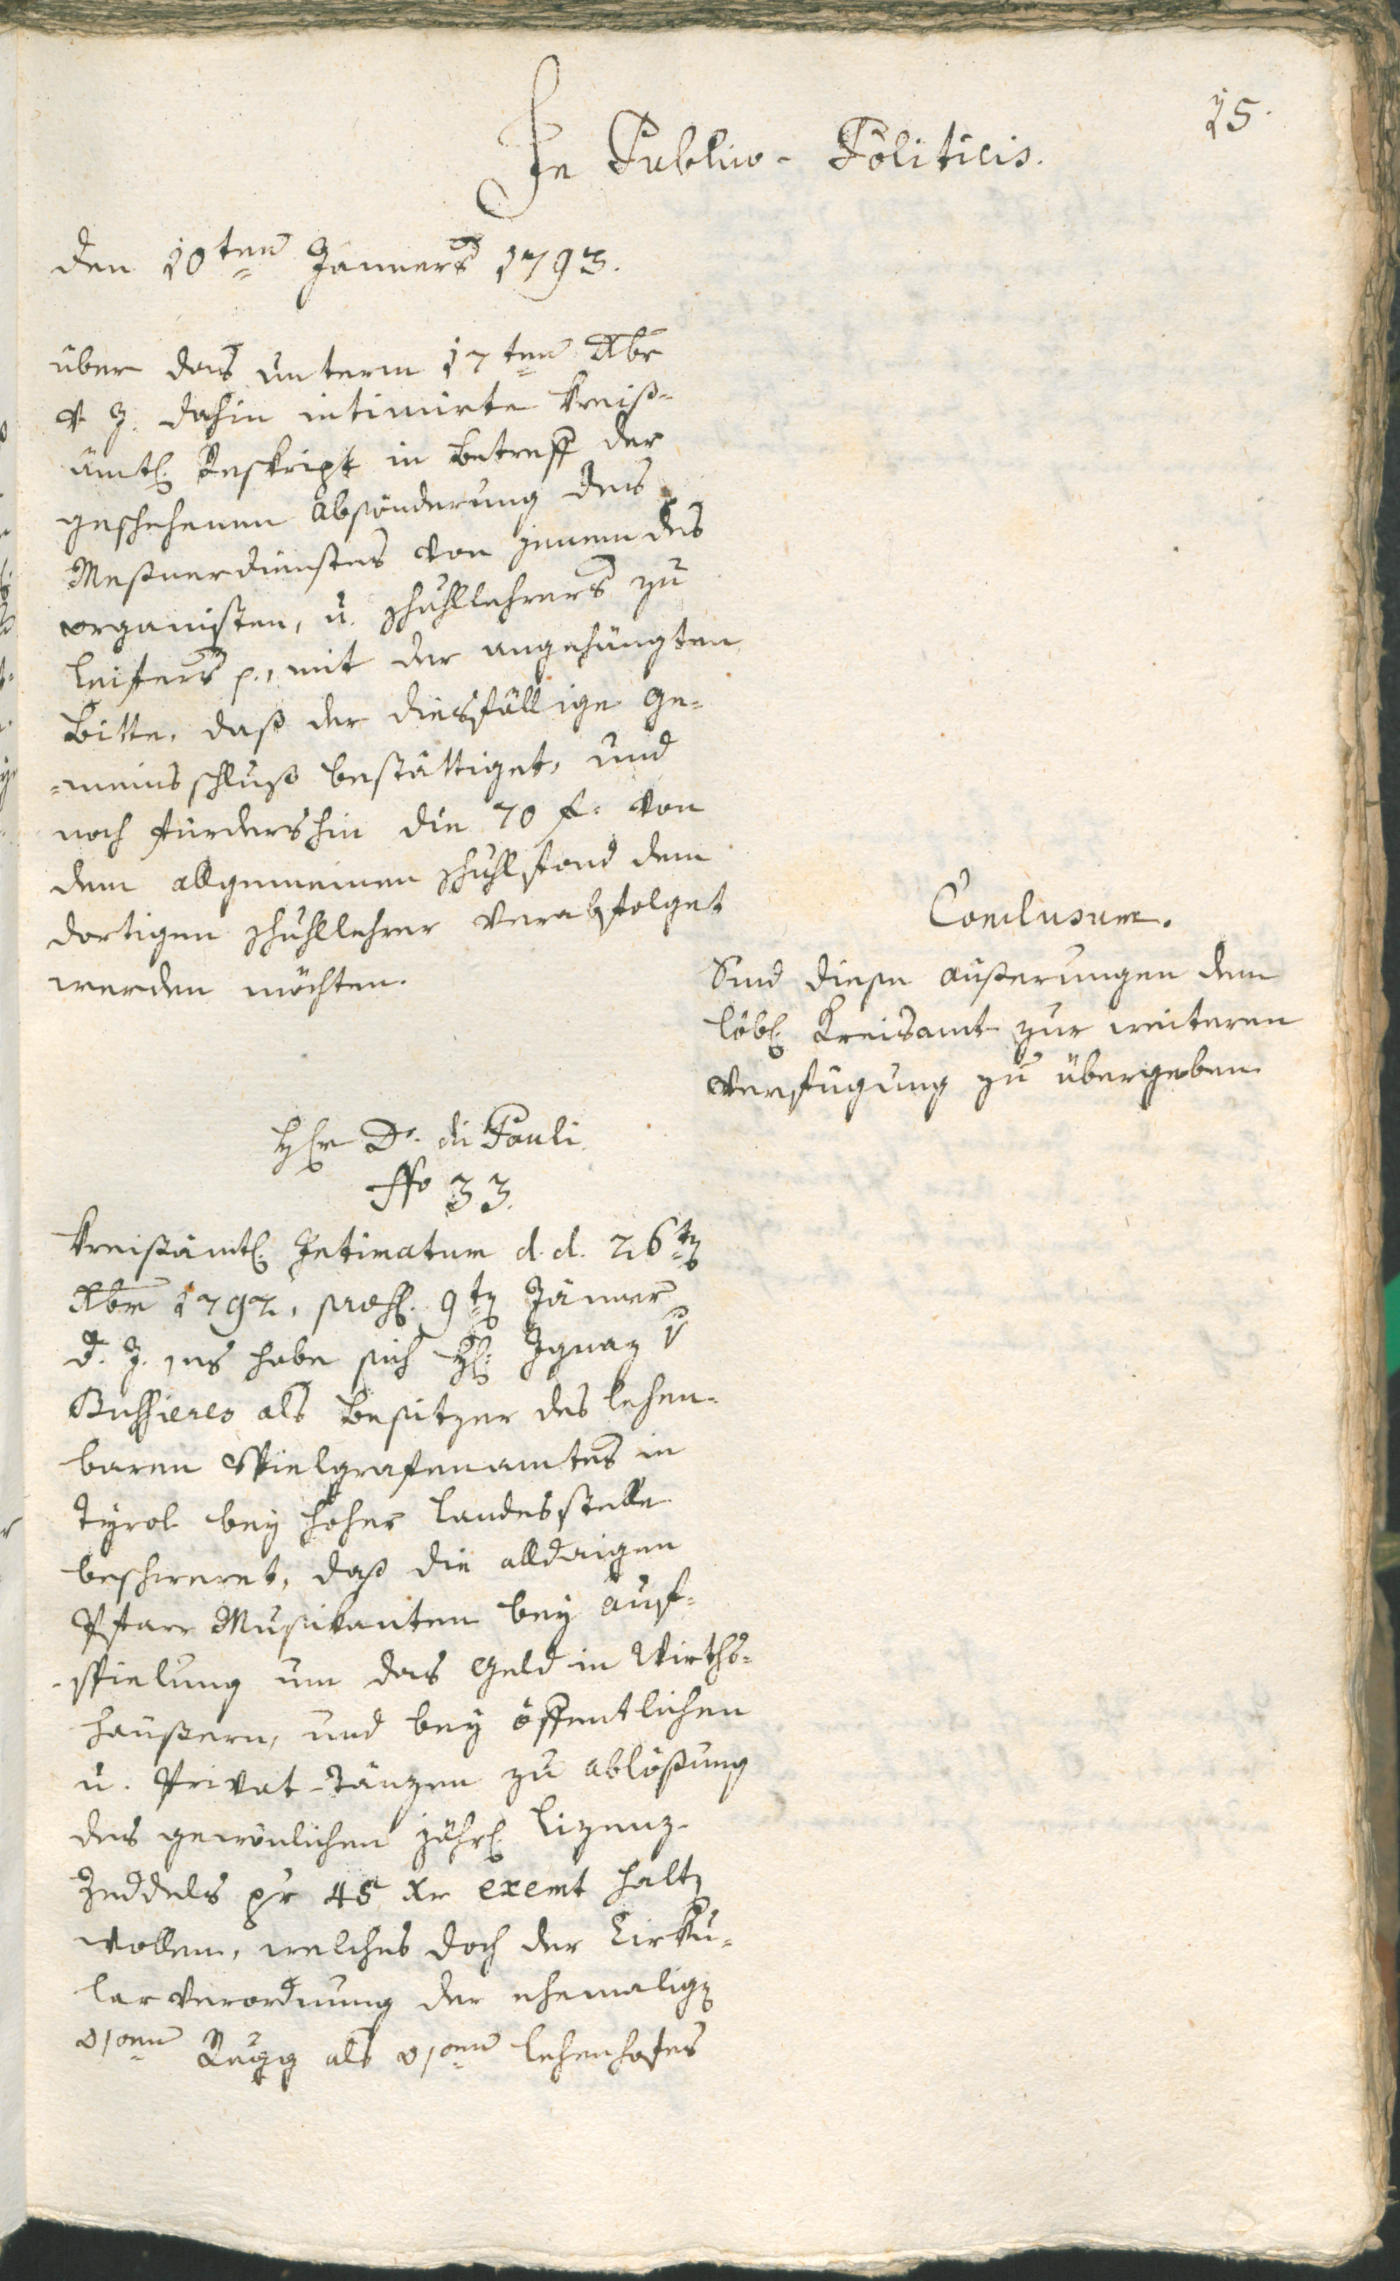 15.
In Publico-Politicis.
den 10ten Jänners 1793.
über das unterm 17ten Xbr
v. J. dahin intimirte Kreiß-
ämtl. Reskript in Betreff der
geschehenen Absönderung des
Meßnerdienstes von jenem des
organisten, u. schullehrers zu
Leifers p., mit der angehängten
Bitte, daß der diesfällige Ge-
-meinschluß bestättiget, und
noch fürdershin die 70 f. von
dem allgemeinen schulfond dem
dortigen schullehrer verabfolget
werden möchten.
Conclusum.
Sind diese äußerungen dem
löbl. Kreisamt zur weiteren
Verfügung zu übergeben
Hr Dr. di Pauli.
Nro 33.
Kreisämtl. Intimatum d. d. 26tn
Xbr 1792, präs. 9tn Jänner
d. J. es habe sich H. Ignaz v
Bussieres als Besitzer des lehen-
baren Spielgrafenamtes in
Tyrol bey hoher Landesstelle
beschweret, daß die alldaigen
Pfarr Musikanten bey Auf-
-spielung um das Geld in Wirths-
häußern, und bey öffentlichen
u. Privat-Tänzen zu ablößung
des gewönlichen jährl. Lizenz-
Zeddels pr 45 Xr exemt halt
wollen, welches doch der Cirku-
lar Verordnung der ehemalig
als Lehenhofes